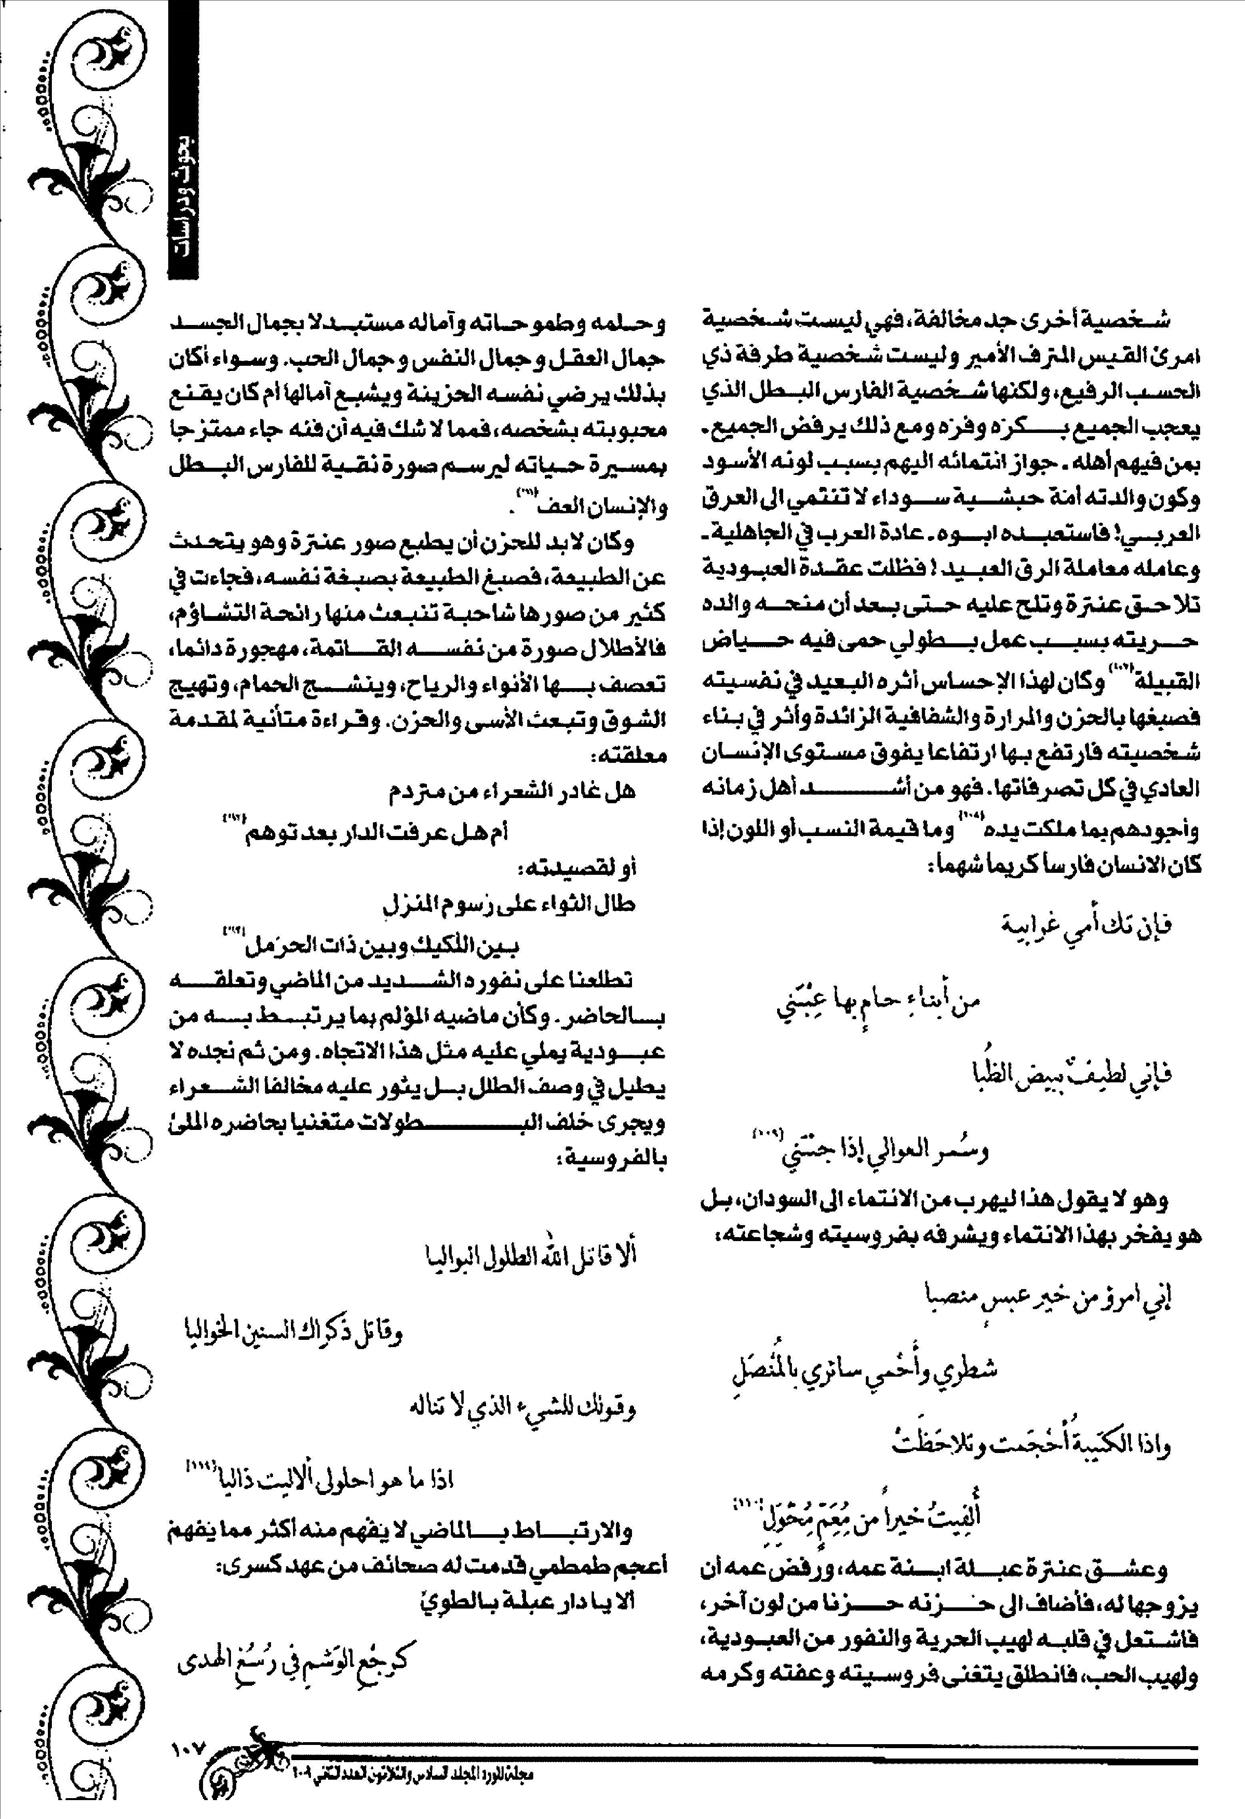 بحوث ودراسات
شخصية أخرى جد مخالفة، فهي ليست شخصية
امرئ القيس المترف الأمير وليست شخصية طرفة ذي
الحسب الرفيع، ولكنها شخصية الفارس البطل الذي
يعجب الجميع بكره وفره ومع ذلك يرفض الجميع-
بمن فيهم أهله- جواز انتمائه اليهم بسبب لونه الأسود
وكون والدته أمة حبشية سوداء لا تنتمي الى العرق
العربي! فاستعبده ابوه- عادة العرب في الجاهلية-
وعامله معاملة الرق العبيد! فظلت عقدة العبودية
تلاحق عنترة وتلح عليه حتى بعد أن منحه والده
حريته بسبب عمل بطولي حمى فيه حياض
القبيلة(١٠٧) وكان لهذا الإحساس أثره البعيد في نفسيته
فصبغها بالحزن والمرارة والشفافية الزائدة وأثر في بناء
شخصيته فارتفع بها ارتفاعا يفوق مستوى الإنسان
العادي في كل تصرفاتها. فهو من أشد أهل زمانه
وأجودهم بما ملكت يده(١٠٨) وما قيمة النسب أو اللون إذا
كان الانسان فارسا كريما شهما:
فإن تك أمي غرابية
من أبناءِ حامٍ بها عِبْتَني
فإني لطيفٌ ببيض الظُبا
وسُمر العوالي إذا جئتَني(١٠٩)
وهو لا يقول هذا ليهرب من الانتماء الى السودان، بل
هو يفخر بهذا الانتماء ويشرفه بفروسيته وشجاعته:
إني امرؤ من خير عبسٍ منصبا
شطري وأَحْمي سائري بالمُنْصَلِ
واذا الكتيبةُ أحْجَمت وتلاحَظَتْ
أُلفِيتُ خيراً من مُعَمٍّ مُخْوَلِ(١١٠)
وعشق عنترة عبلة ابنة عمه، ورفض عمه أن
يزوجها له، فأضاف الى حزنه حزنا من لون آخر،
فاشتعل في قلبه لهيب الحرية والنفور من العبودية،
ولهيب الحب، فانطلق يتغنى فروسيته وعفته وكرمه
وحلمه وطموحاته وآماله مستبدلا بجمال الجسد
جمال العقل وجمال النفس وجمال الحب. وسواء أكان
بذلك يرضي نفسه الحزينة ويشبع آمالها أم كان يقنع
محبوبته بشخصه، فمما لا شك فيه أن فنه جاء ممتزجا
بمسيرة حياته ليرسم صورة نقية للفارس البطل
والإنسان العف(١١١).
وكان لابد للحزن أن يطبع صور عنترة وهو يتحدث
عن الطبيعة، فصبغ الطبيعة بصبغة نفسه، فجاءت في
كثير من صورها شاحبة تنبعث منها رائحة التشاؤم،
فالأطلال صورة من نفسه القاتمة، مهجورة دائما،
تعصف بها الأنواء والرياح، وينشج الحمام، وتهيج
الشوق وتبعث الأسى والحزن. وقراءة متأنية لمقدمة
معلقته:
هل غادر الشعراء من متردم
أم هل عرفت الدار بعد توهم(١١٢)
أو لقصيدته:
طال الثواء على رسوم المنزل
بين اللكيك وبين ذات الحرمل(١١٣)
تطلعنا على نفوره الشديد من الماضي وتعلقه
بالحاضر. وكأن ماضيه المؤلم بما يرتبط به من
عبودية يملي عليه مثل هذا الاتجاه. ومن ثم نجده لا
يطيل في وصف الطلل بل يثور عليه مخالفا الشعراء
ويجرى خلف البطولات متغنيا بحاضره الملئ
بالفروسية:
ألا قاتل الله الطلول البواليا
وقاتل ذكراك السنين الخواليا
وقولك للشيء الذي لا تناله
اذا ما هو احلولى ألا ليت ذاليا(١١٤)
والارتباط بالماضي لا يفهم منه أكثر مما يفهم
أعجم طمطمي قدمت له صحائف من عهد كسرى:
ألا يا دار عبلة بالطويّ
كرجْعِ الوَشْمِ في رُسْغِ الهدى
١٠٧
مجلة المورد المجلد السادس والثلاثون العدد الثاني ٢٠٠٩